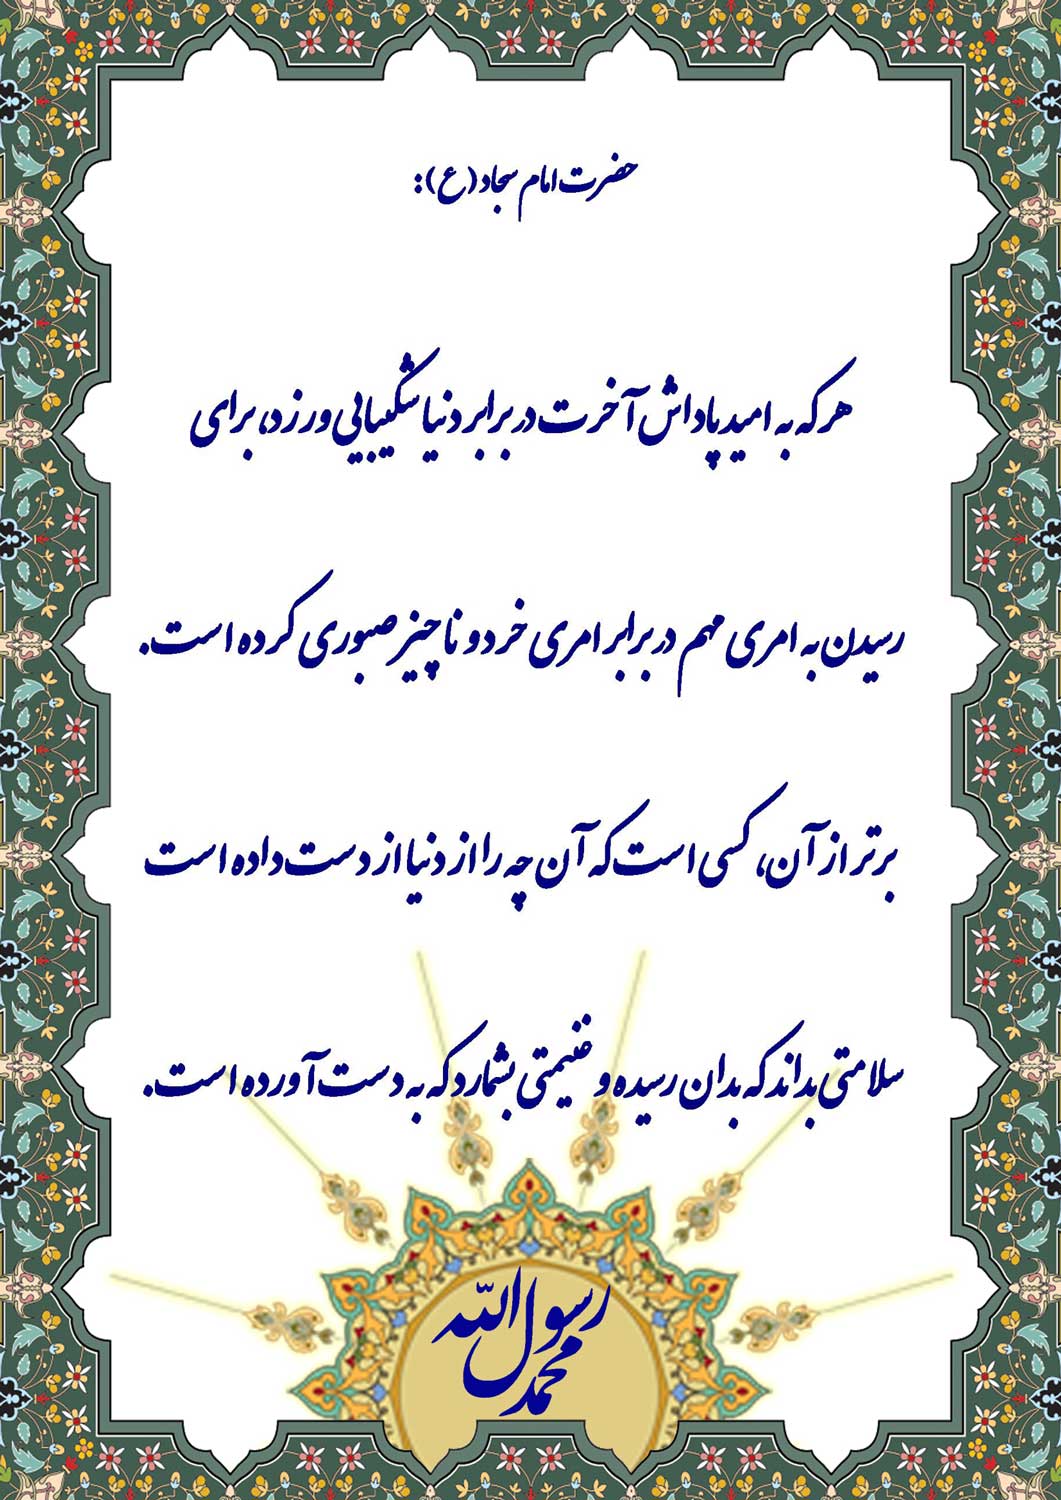 حضرت امام سجاد (ع):
هر که به امید پاداش آخرت در برابر دنیا شکیبایی ورزد، برای
رسیدن به امری مهم در برابر امری خرد و ناچیز صبوری کرده است.
برتر از آن، کسی است که آن چه را از دنیا از دست داده است
سلامتی بداند که بدان رسیده و غنیمتی بشمارد که به دست آورده است.
محمد رسول الله